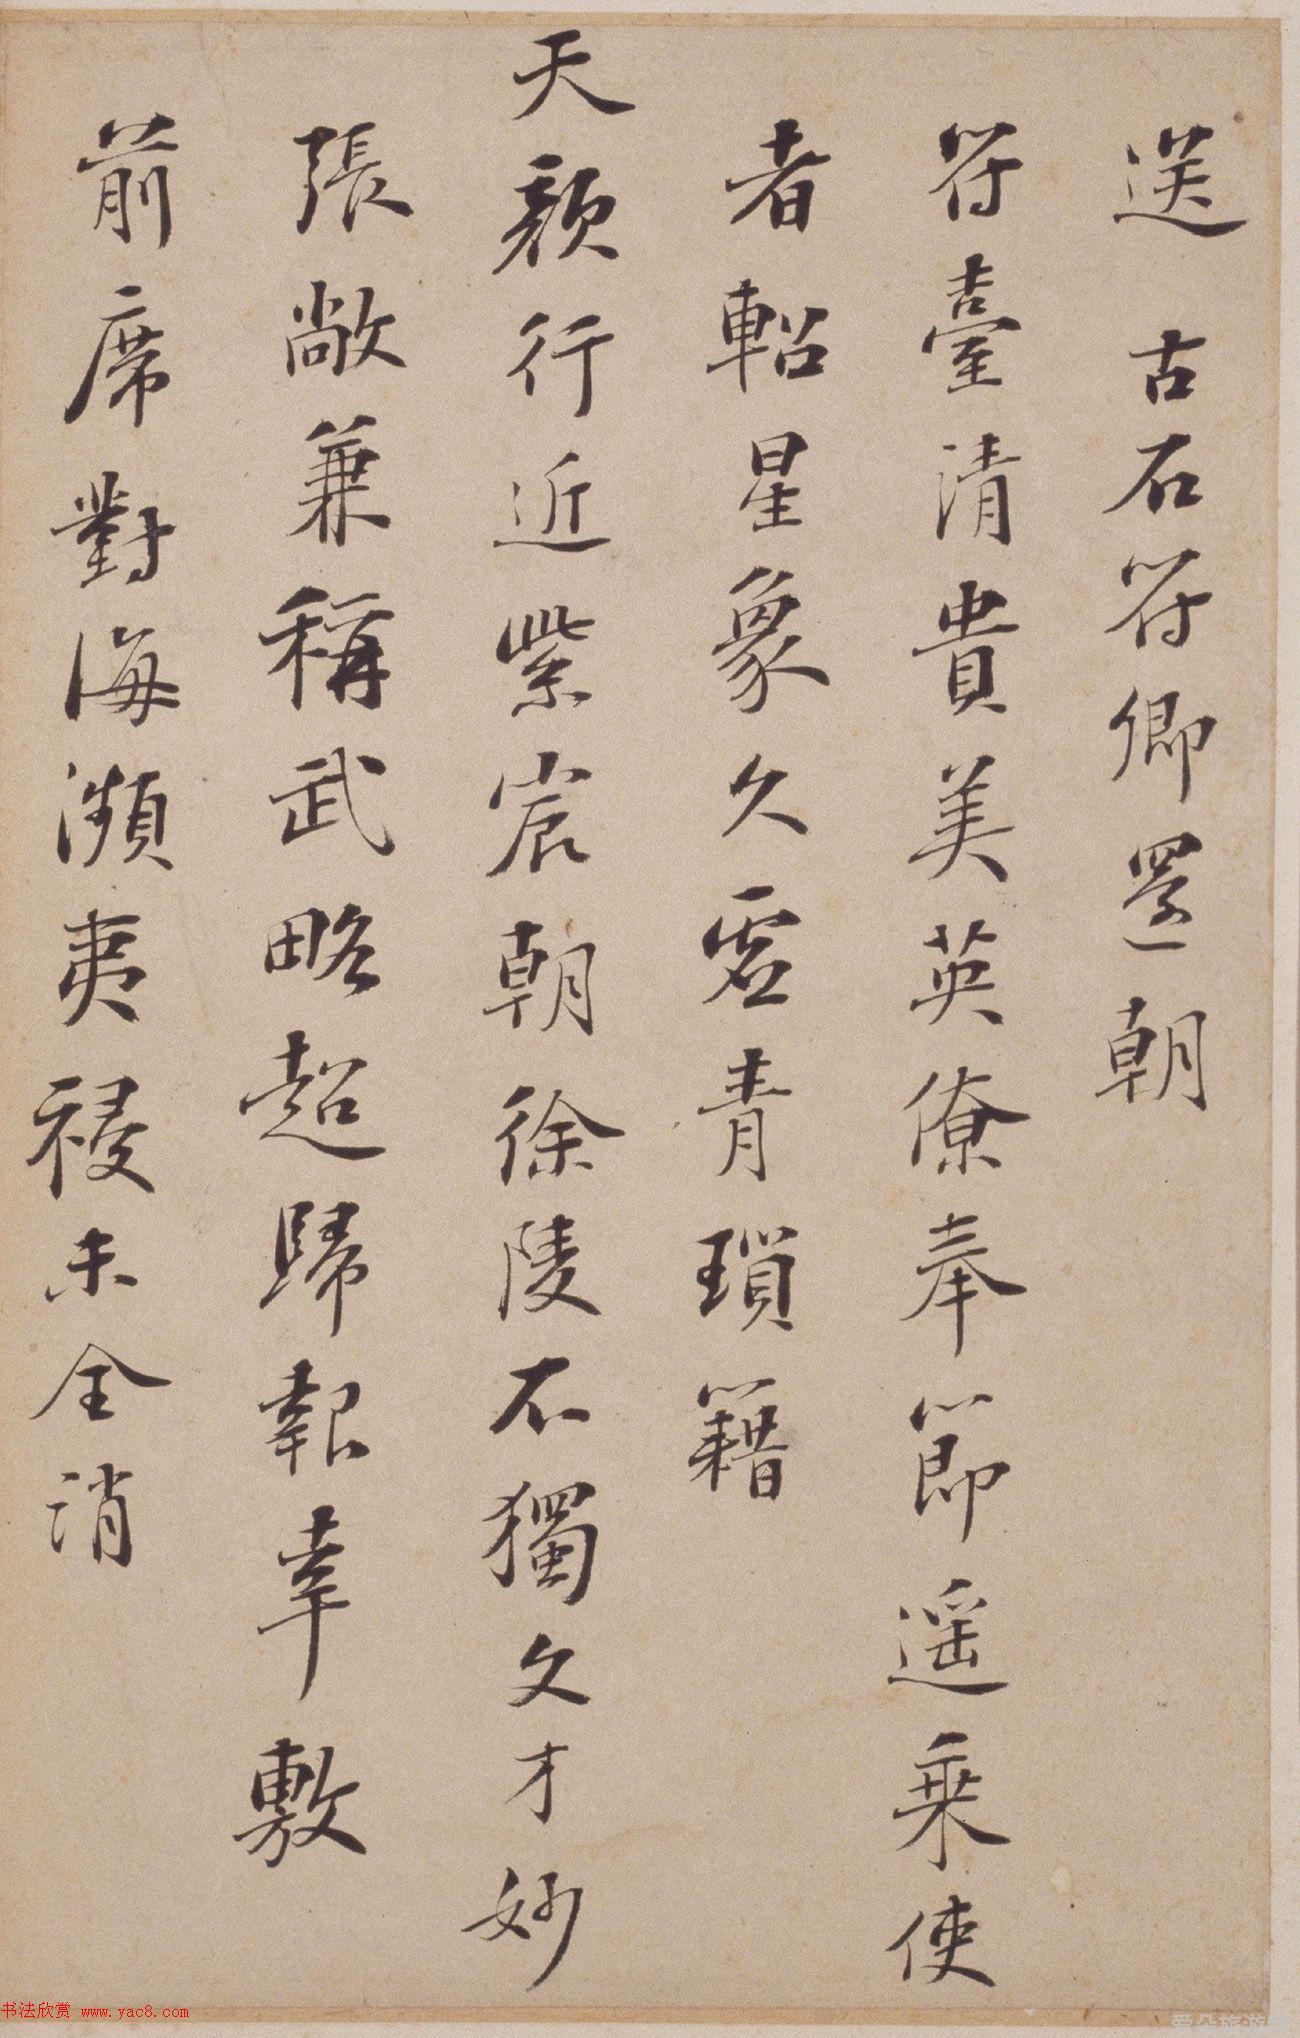 送 古石符卿還朝
符臺清貴美英僚奉節遥乘使
者軺星象久虚青瑣籍
天顔行近紫宸朝徐陵不獨文才妙
張敞兼稱武略超歸報幸敷
前席對海瀕夷祲未全消
书法欣赏 www.yac8.com